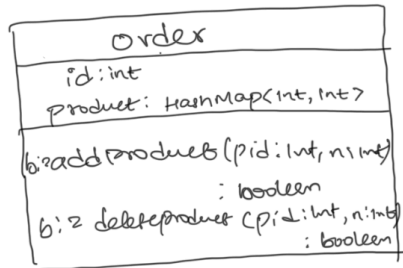 Order
id:int
product: HashMap<int, int>
b:=addproduct(pid:int, n:int)
: boolean
b:= deleteproduct (pid:int, n:int)
: boolean